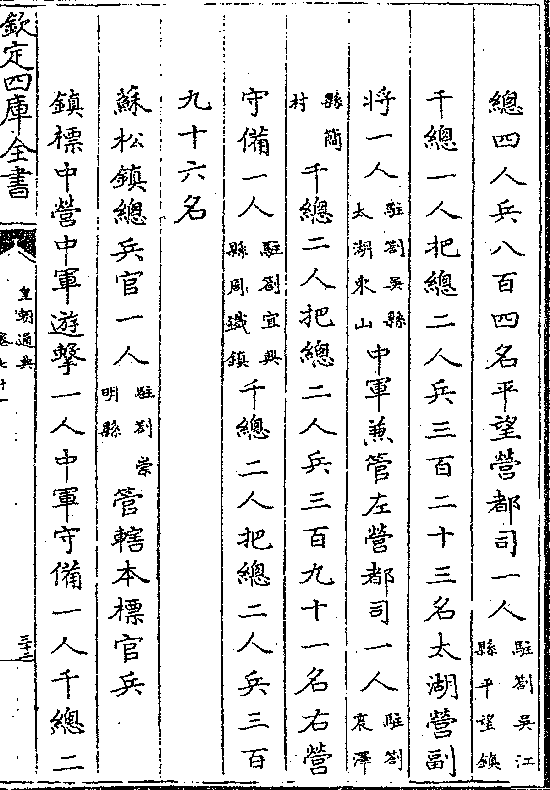 總四人兵八百四名平望營都司一人駐劄吳江縣平望鎮
千總一人把總二人兵三百二十三名太湖營副
將一人駐劄吳縣太湖東山中軍兼管左營都司一人駐劄震澤
縣簡村千總二人把總二人兵三百九十一名右營
守備一人駐劄宜興縣周鐵鎮千總二人把總二人兵三百
九十六名
蘇松鎮總兵官一人駐劄崇明縣管轄本標官兵
鎮標中營中軍遊擊一人中軍守備一人千總二
欽定四庫全書
皇朝通典
卷七十一